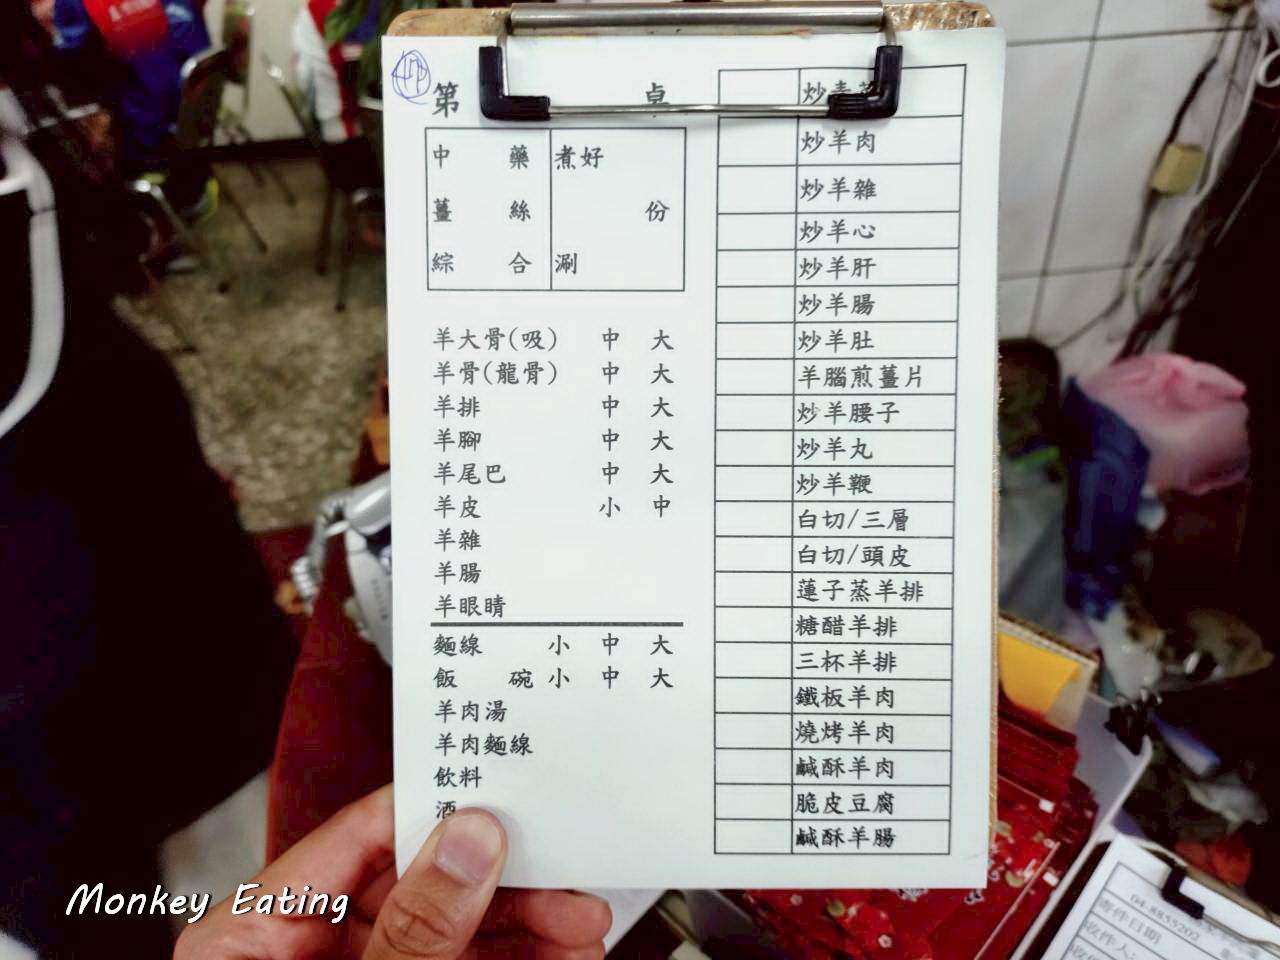 第 卓
中藥 煮好
薑絲 份
綜合 涮
羊大骨(吸) 中 大
羊骨(龍骨) 中 大
羊排 中 大
羊腳 中 大
羊尾巴 中 大
羊皮 小 中
羊雜
羊腸
羊眼睛
麵線 小 中 大
飯 碗 小 中 大
羊肉湯
羊肉麵線
飲料
酒
炒青
炒羊肉
炒羊雜
炒羊心
炒羊肝
炒羊腸
炒羊肚
羊腦煎薑片
炒羊腰子
炒羊丸
炒羊鞭
白切/三層
白切/頭皮
蓮子蒸羊排
糖醋羊排
三杯羊排
鐵板羊肉
燒烤羊肉
鹹酥羊肉
脆皮豆腐
鹹酥羊腸
04-8855202
寄件日期
收件人
Monkey Eating